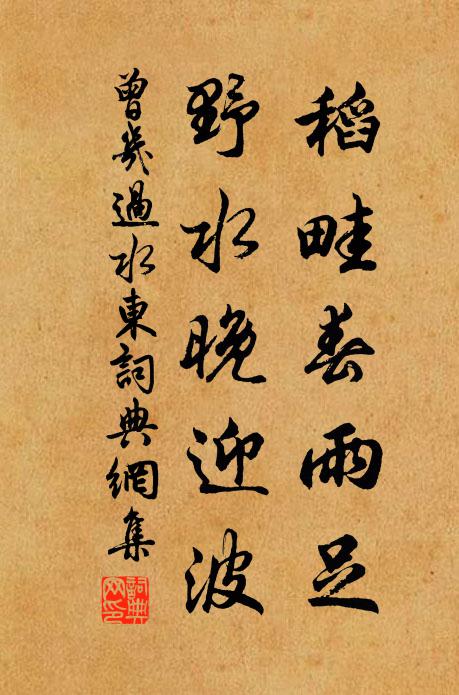 稻畦春雨足
野水晚迎波
曾幾過水東詞典網集
詞典網印